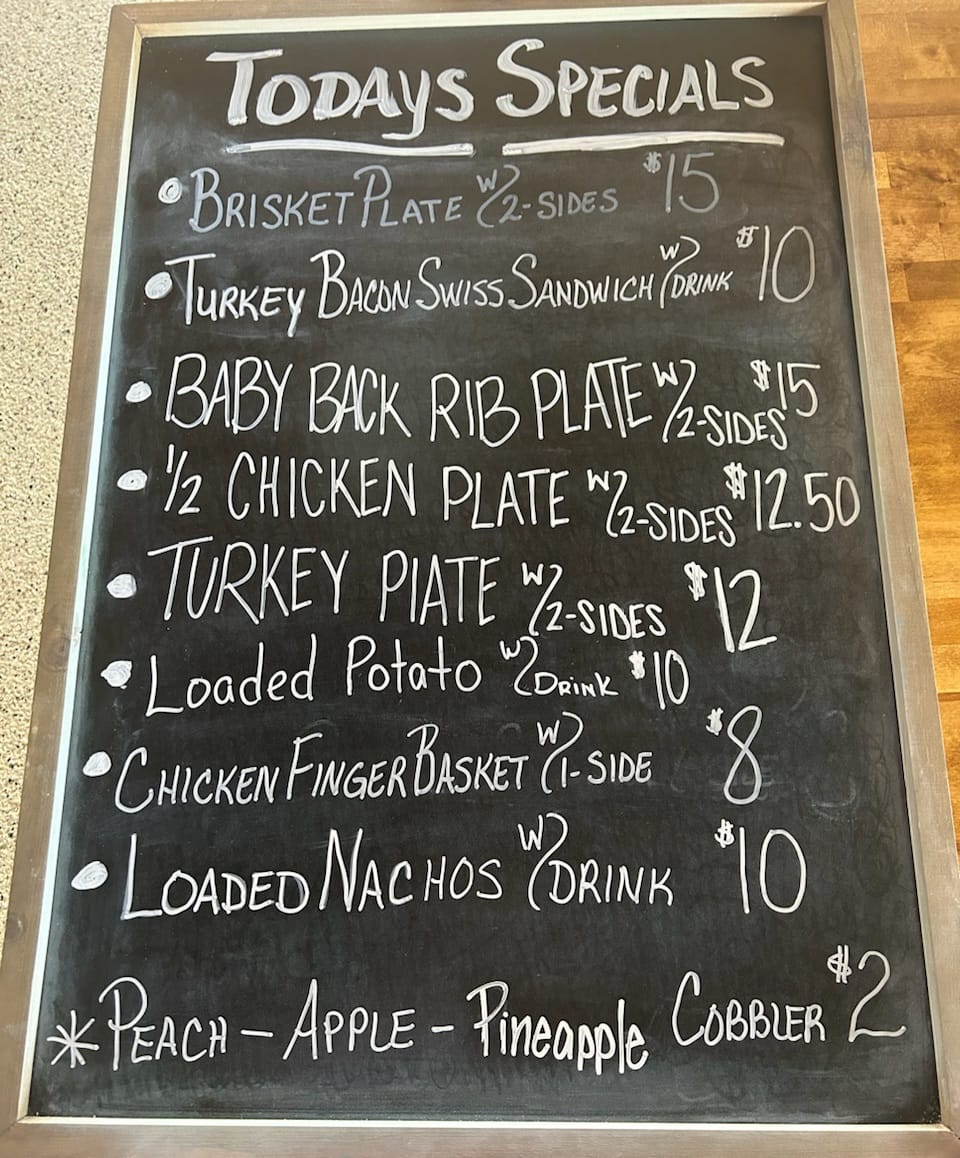 TODAYS SPECIALS
• BRISKET PLATE W/ 2-SIDES $15
• TURKEY BACON SWISS SANDWICH W/ DRINK $10
• BABY BACK RIB PLATE W/ 2-SIDES $15
• 1/2 CHICKEN PLATE W/ 2-SIDES $12.50
• TURKEY PLATE W/ 2-SIDES $12
• Loaded Potato W/ DRINK $10
• CHICKEN FINGER BASKET W/ 1-SIDE $8
• LOADED NACHOS W/ DRINK $10
* PEACH - APPLE - Pineapple COBBLER $2